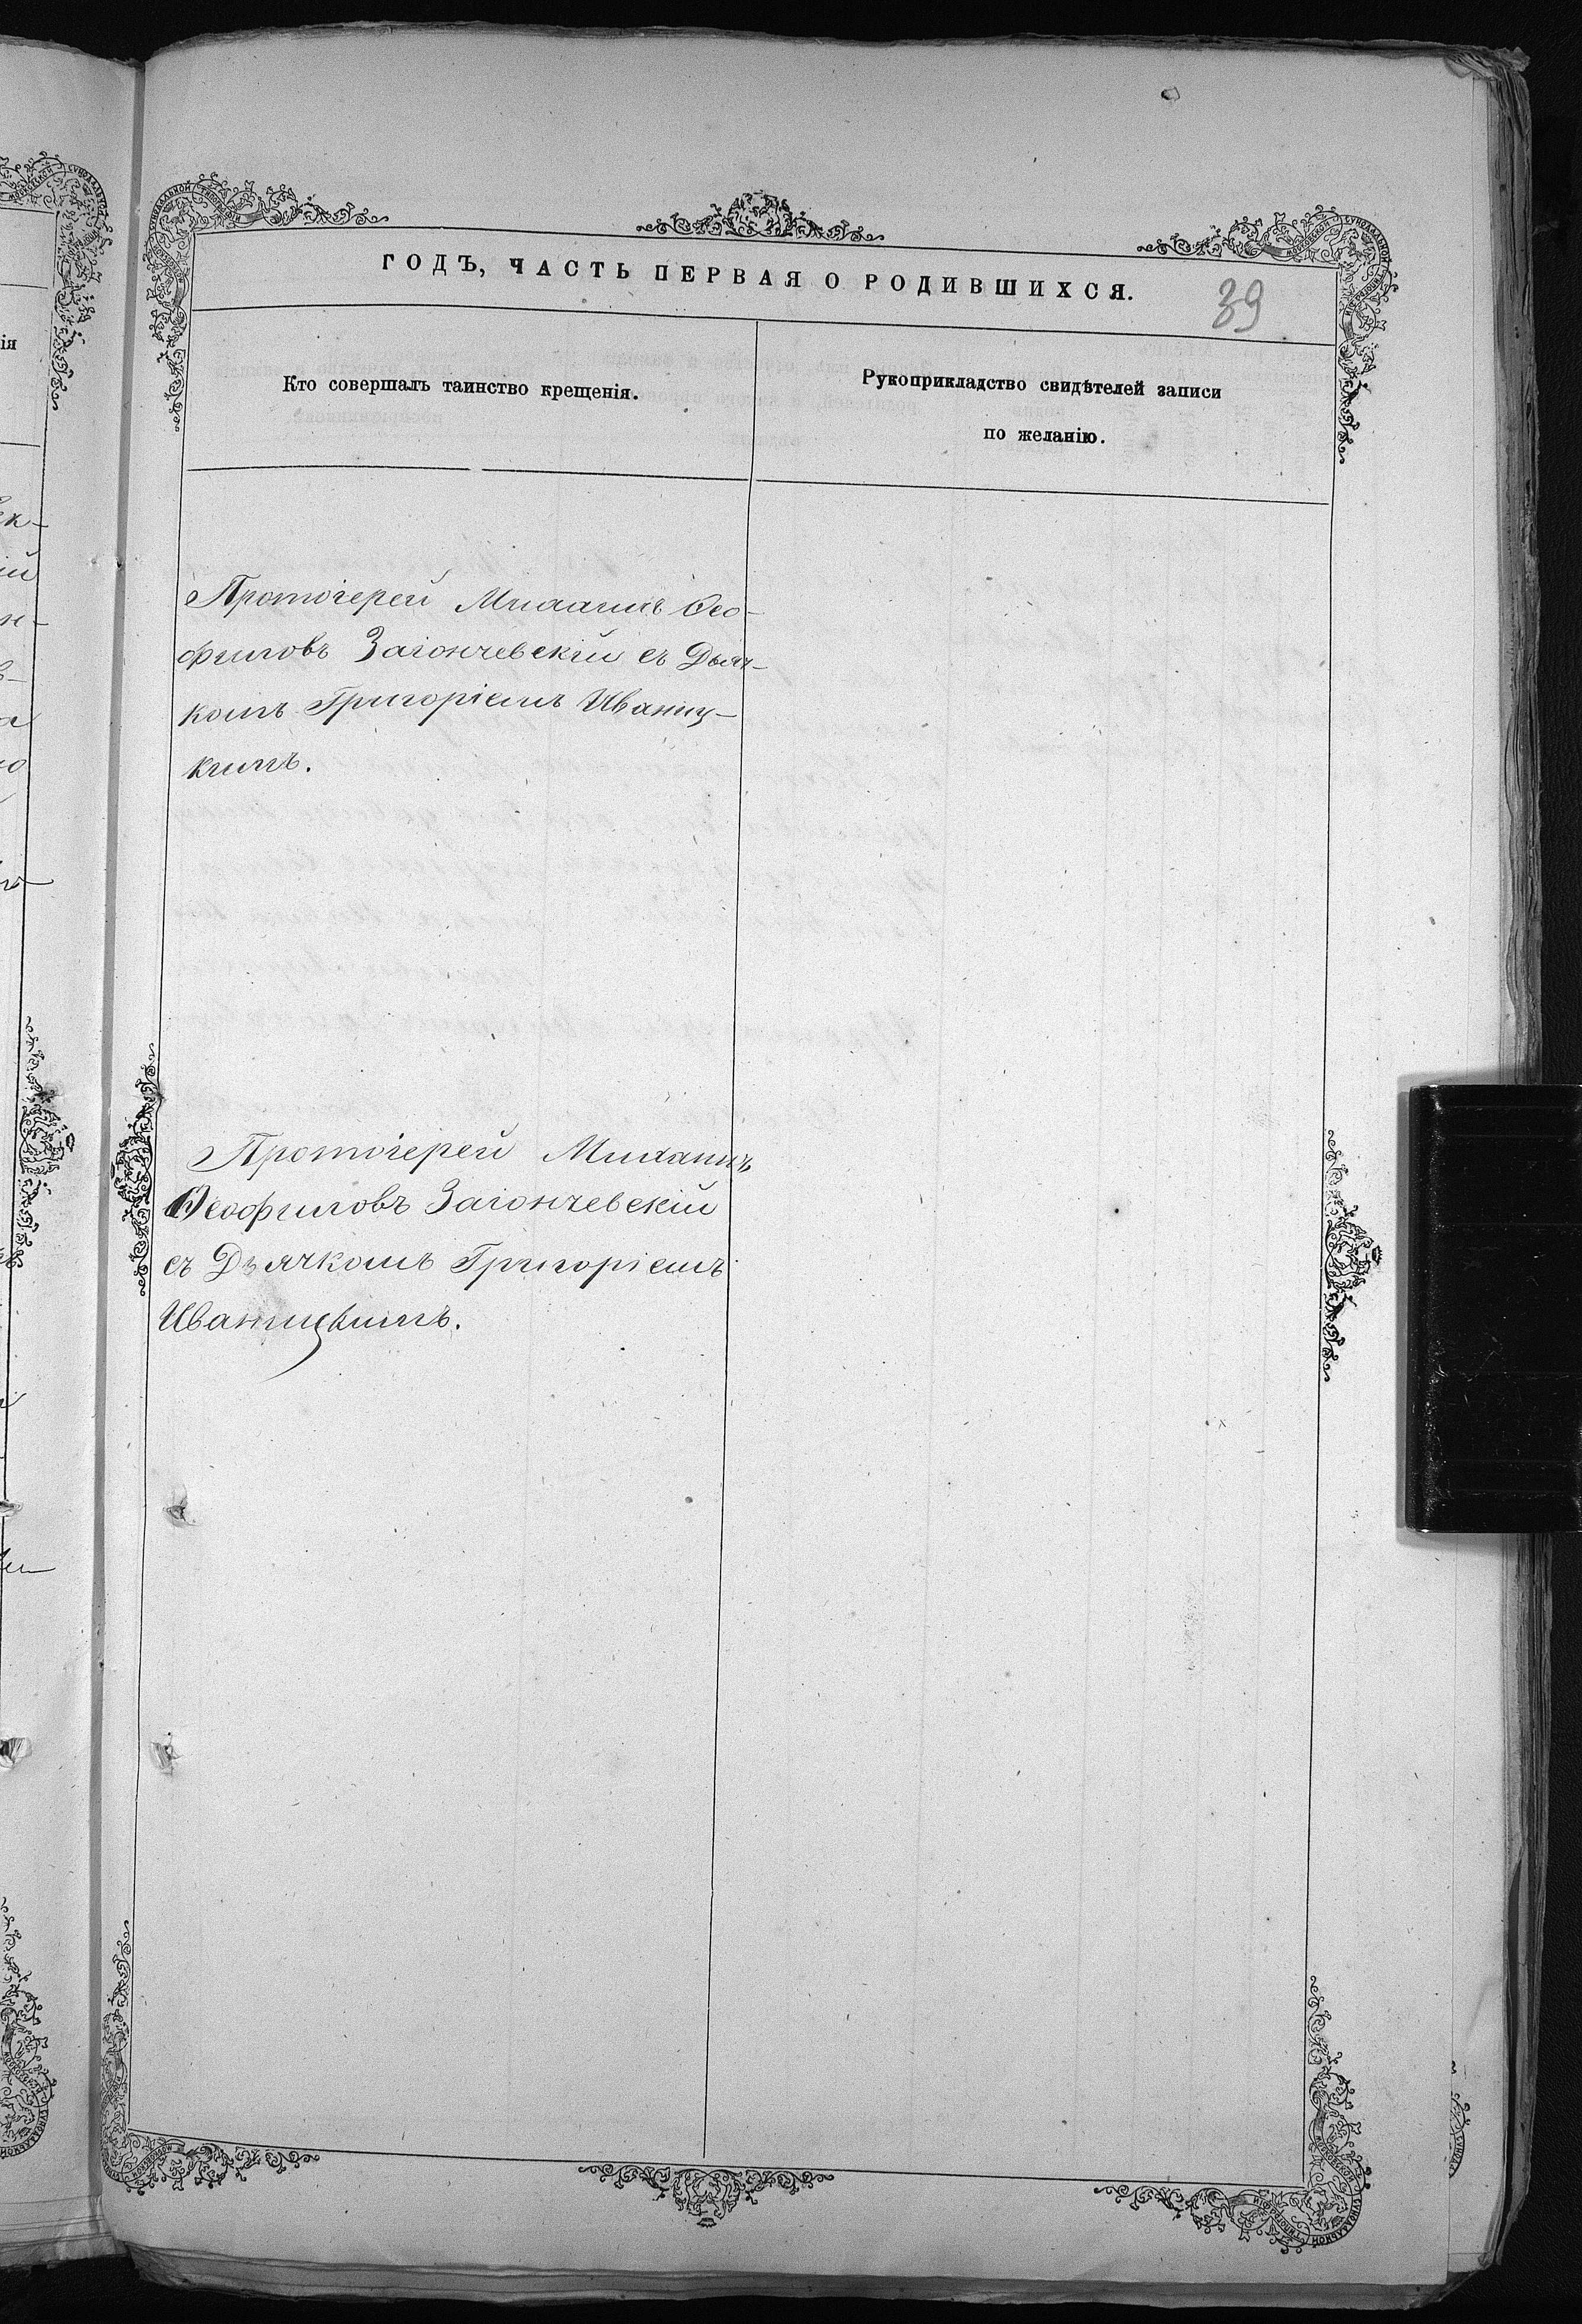 ГОДЪ, ЧАСТЬ ПЕРВАЯ О РОДИВШИХСЯ.
39
Кто совершалъ таинство крещенія.
Рукоприкладство свидѣтелей записи
по желанію.
Протоіерей Михаилъ Ѳео-
филовъ Загончевскій съ Дьяч-
комъ Григоріемъ Иваниц-
кимъ.
Протоіерей Михаилъ
Ѳеофиловъ Загончевскій
съ Дьячкомъ Григоріемъ
Иваницкимъ.